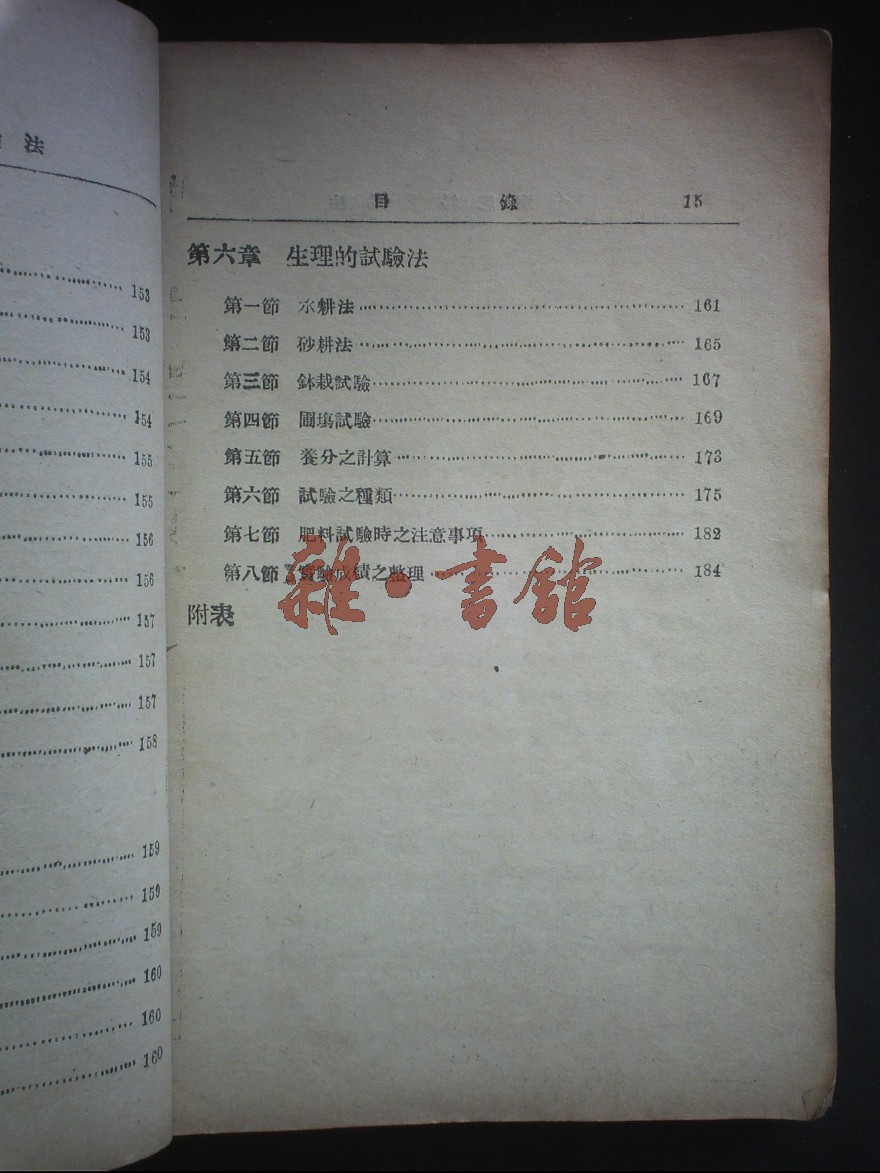 法
153
153
154
154
155
155
156
156
157
157
157
158
159
159
159
160
160
160
目錄 15
第六章 生理的試驗法
第一節 水耕法 161
第二節 砂耕法 165
第三節 鉢栽試驗 167
第四節 圃塲試驗 169
第五節 養分之計算 173
第六節 試驗之種類 175
第七節 肥料試驗時之注意事項 182
第八節 實驗成績之整理 184
附表
雜·書館